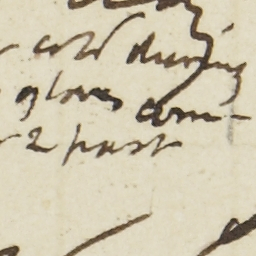 cold during
gloves com-
2 past